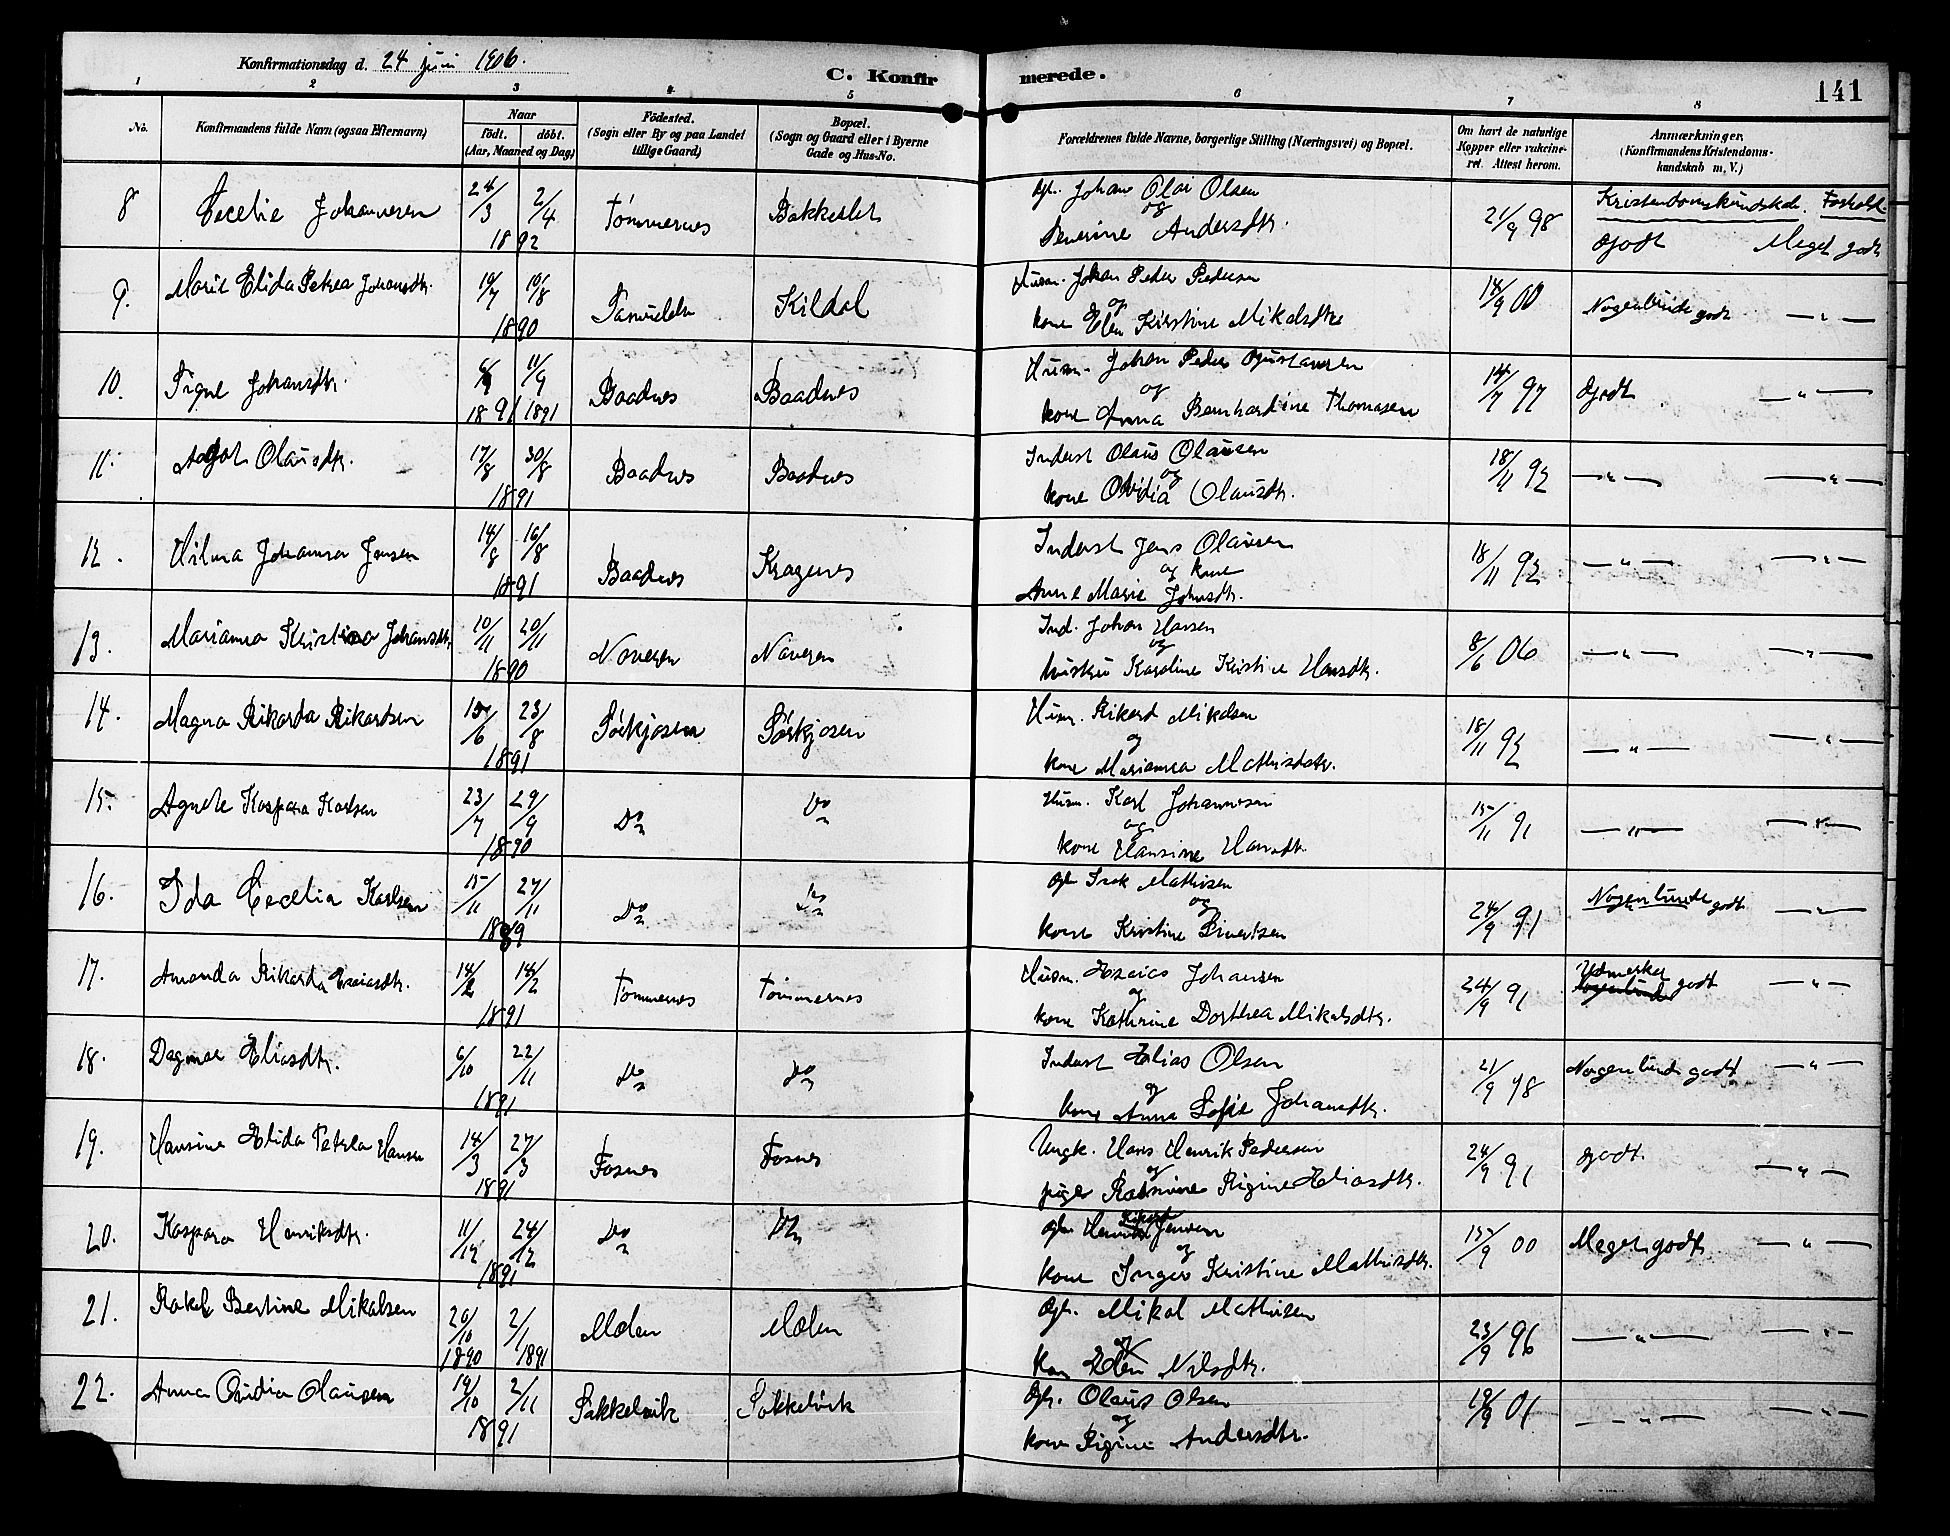 Konfirmationsdag d. 24 juni 1906.
C. Konfirmerede.
141
1 2 3 4 5 6 7 8
No.
Konfirmandens fulde Navn (ogsaa Efternavn)
Naar
födt. döbt.
(Aar, Maaned og Dag)
Födested.
(Sogn eller By og paa Landet
tillige Gaard)
Bopæl.
(Sogn og Gaard eller i Byerne
Gade og Hus-No.
Forældrenes fulde Navne, borgerlige Stilling (Næringsvei) og Bopæl.
Om havt de naturlige
Kopper eller vakcine-
ret. Attest herom.
Anmærkninger,
(Konfirmandens Kristendoms-
kundskab m. V.)
8 Cecelie Johannesen 24/3 2/4 1892 Tömmernes Bakkeslet
Gbr. Johan Olai Olsen
og
Severine Andersdtr. 21/9 98
Kristendomskundskab. Forhold
Godt Meget godt
9. Marie Elida Petrea Johansdtr. 10/7 10/8 1890 Kildal
Husm. Johan Peder Pedersen
og
kone Elen Kirstine Mikalsdtr 14/9 00 Nogenlunde godt — " —
10. Signe Johansdtr. 11/9 1891 1891 Baadnes Baadnes
Husm. Johan Peder Gustavsen
og
kone Anna Bernhardine Thomasen 14/7 97 Godt — " —
11. Olausdtr. 17/8 30/8 1891 Baadnes Baadnes
Inderst Olaus Olausen
og
kone Ovidia Olausdtr. 18/11 92 — " — — " —
12. Hilma Johanna Jensen 14/8 16/8 1891 Baadnes Kragenes
Inderst Jens Olausen
og kone
Anne Marie Johnsdtr. 18/11 92 — " — — " —
13. Marianna Kristina Johansdtr. 10/11 20/11 1890 Naveren Naveren
Ind. Johan Hansen
og
hustru Karoline Kristine Hansdtr. 8/6 06 — " — — " —
14. Magna Rikarda Rikardsen 15/6 23/8 1891 Sörkjosen Sörkjosen
Husm. Rikard Mikalsen
og
kone Marianna Mathisdatr. 18/11 92 — " — — " —
15. Agnete Kaspara Karlsen 23/7 29/9 1890 Do Do
Husm. Karl Johannesen
og
kone Hansine Hansdtr. 15/11 91 — " — — " —
16. Ida Cecelia Karlsen 15/11 27/11 1889 Do Do
Gbr Isak Mathisen
og
kone Kristine Sivertsen 24/9 91 Nogenlunde godt — " —
17. Amanda Rikarda Esaiasdtr. 14/2 14/2 1891 Tömmernes Tömmernes
Husm. Esaias Johansen
og
kone Kathrine Dorthea Mikalsdtr. 24/9 91
Udmerket
Nogenlunde godt — " —
18. Dagmar Eliasdtr. 6/10 22/11 1891 Do Do
Inderst Elias Olsen
og
kone Anna Sofie Johansdtr. 21/9 98 Nogenlunde godt — " —
19. Hansine Elida Petrea Hansen 14/3 27/3 1891 Fosnes Fosnes
Ungk. Hans Henrik Pedersen
og
pige Rasmine Rigine Eliasdtr. 24/9 91 godt. — " —
20. Kaspara Henriksdtr. 11/12 24/12 1891 Do Do
Rikard
Gbr. Henrik Jensen
og
kone Inger Kristine Mathisdtr. 15/9 00 Meget godt — " —
21. Rakel Bertine Mikalsen 20/10 2/1 1890 1891 Molen Molen
Gbr. Mikal Mathisen
og
kon Elen Nilsdtr. 23/9 96 — " — — " —
22. Anna Ovidia Olausen 19/10 2/11 1891 Sakkelvik Sakkelvik
Gbr. Olaus Olsen
og
kone Rigine Andersdtr. 19/9 01 — " — — " —